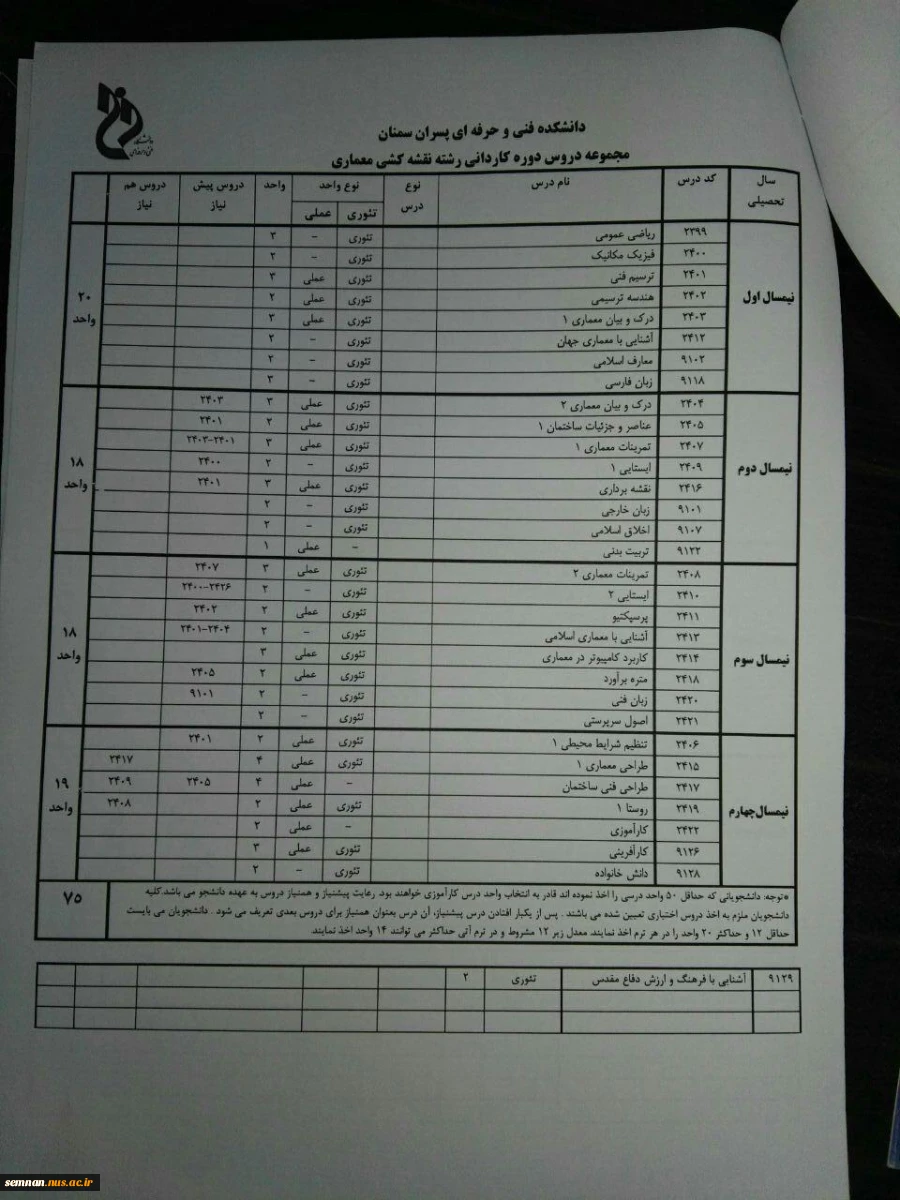 دانشکده فنی و حرفه ای پسران سمنان
مجموعه دروس دوره کاردانی رشته نقشه کشی معماری
سال تحصیلی کد درس نام درس نوع درس نوع واحد تئوری عملی واحد دروس پیش نیاز دروس هم نیاز
نیمسال اول
۲۳۹۹ ریاضی عمومی تئوری - ۳
۲۴۰۰ فیزیک مکانیک تئوری - ۲
۲۴۰۱ ترسیم فنی تئوری عملی ۳
۲۴۰۲ هندسه ترسیمی تئوری عملی ۲
۲۴۰۳ درک و بیان معماری ۱ تئوری عملی ۳
۲۴۱۲ آشنایی با معماری جهان تئوری - ۲
۹۱۰۲ معارف اسلامی تئوری - ۲
۹۱۱۸ زبان فارسی تئوری - ۳
۲۰ واحد
نیمسال دوم
۲۴۰۴ درک و بیان معماری ۲ تئوری عملی ۳ ۲۴۰۳
۲۴۰۵ عناصر و جزئیات ساختمان ۱ تئوری عملی ۲ ۲۴۰۱
۲۴۰۷ تمرینات معماری ۱ تئوری عملی ۳ ۲۴۰۳-۲۴۰۱
۲۴۰۹ ایستایی ۱ تئوری - ۲ ۲۴۰۰
۲۴۱۶ نقشه برداری تئوری عملی ۳ ۲۴۰۱
۹۱۰۱ زبان خارجی تئوری - ۲
۹۱۰۷ اخلاق اسلامی تئوری - ۲
۹۱۲۲ تربیت بدنی - عملی ۱
۱۸ واحد
نیمسال سوم
۲۴۰۸ تمرینات معماری ۲ تئوری عملی ۳ ۲۴۰۷
۲۴۱۰ ایستایی ۲ تئوری - ۲ ۲۴۰۰-۲۴۲۶
۲۴۱۱ پرسپکتیو تئوری عملی ۲ ۲۴۰۲
۲۴۱۳ آشنایی با معماری اسلامی تئوری - ۲ ۲۴۰۱-۲۴۰۴
۲۴۱۴ کاربرد کامپیوتر در معماری تئوری عملی ۳
۲۴۱۸ متره برآورد تئوری عملی ۲ ۲۴۰۵
۲۴۲۰ زبان فنی تئوری - ۲ ۹۱۰۱
۲۴۲۱ اصول سرپرستی تئوری - ۲
۱۸ واحد
نیمسال چهارم
۲۴۰۶ تنظیم شرایط محیطی ۱ تئوری عملی ۲ ۲۴۰۱
۲۴۱۵ طراحی معماری ۱ تئوری عملی ۴ ۲۴۱۷
۲۴۱۷ طراحی فنی ساختمان - عملی ۴ ۲۴۰۵ ۲۴۰۹
۲۴۱۹ روستا ۱ تئوری عملی ۲ ۲۴۰۸
۲۴۲۲ کارآموزی - عملی ۲
۹۱۲۶ کارآفرینی تئوری عملی ۳
۹۱۲۸ دانش خانواده تئوری - ۲
۱۹ واحد
*توجه: دانشجویانی که حداقل ۵۰ واحد درسی را اخذ نموده اند قادر به انتخاب واحد درس کارآموزی خواهند بود. رعایت پیشنیاز و همنیاز دروس به عهده دانشجو می باشد.کلیه
دانشجویان ملزم به اخذ دروس اختیاری تعیین شده می باشند . پس از یکبار افتادن درس پیشنیاز، آن درس بعنوان همنیاز برای دروس بعدی تعریف می شود . دانشجویان می بایست
حداقل ۱۲ و حداکثر ۲۰ واحد را در هر ترم اخذ نمایند. معدل زیر ۱۲ مشروط و در ترم آتی حداکثر می توانند ۱۴ واحد اخذ نمایند.
۷۵
۹۱۲۹ آشنایی با فرهنگ و ارزش دفاع مقدس تئوری ۲
semnan.nus.ac.ir